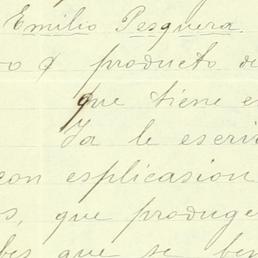 Emilio Pesquera.
o q producto de
que tiene e
Ya le escri
con esplicasion
s, que produge
bes que se ben